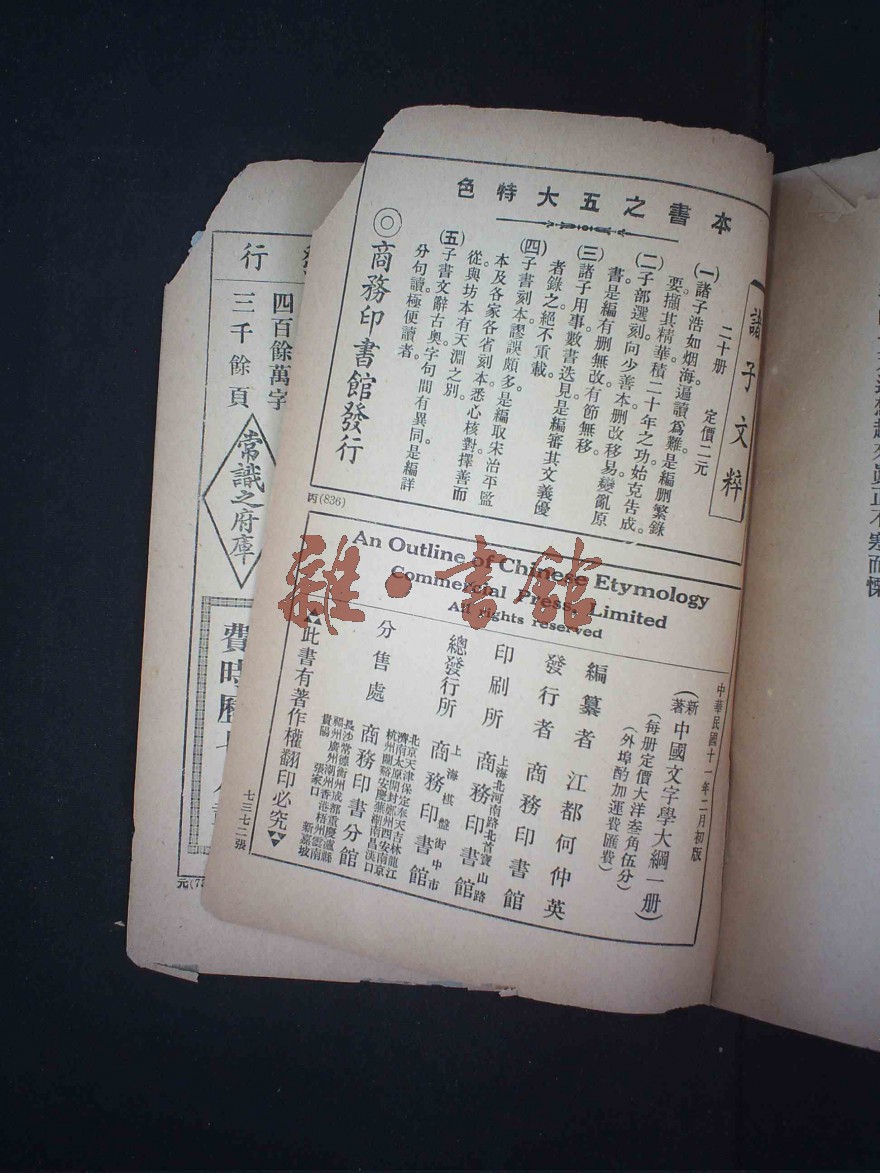 諸子文粹
二十册　定價二元
本書之五大特色
(一)諸子浩如烟海。遍讀爲難。是編删繁銖
要。擷其精華。積二十年之功。始克告成。
(二)子部選刻。向少善本。删改移易。變亂原
書。是編有删無改。有節無移。
(三)諸子用事。數書迭見。是編審其文義優
者錄之。絕不重載。
(四)子書刻本。謬誤頗多。是編取宋治平監
本。及各家各省刻本。悉心核對。擇善而
從。與坊本有天淵之別。
(五)子書文辭古奧。字句間有異同。是編詳
分句讀。極便讀者。
◎商務印書館發行
丙(836)
An Outline of Chinese Etymology
Commercial Press, Limited
All rights reserved
中華民國十一年二月初版
(新著)中國文字學大綱一册)
(每册定價大洋叁角伍分)
(外埠酌加運費匯費)
編纂者 江都何仲英
發行者 商務印書館
印刷所 上海北河南路北首寶山路 商務印書館
總發行所 上海棋盤街中市 商務印書館
分售處 商務印書分館
北京天津保定奉天吉林龍江
濟南太原開封鄭州西安南京
杭州蘭谿安慶蕪湖南昌漢口
長沙常德衡州成都重慶瀘縣
福州廣州潮州香港梧州雲南
貴陽 張家口 新嘉坡
此書有著作權翻印必究
七三七二張
行
四百餘萬字
三千餘頁
常識之府庫
費時歷七
元(73
雜·書館